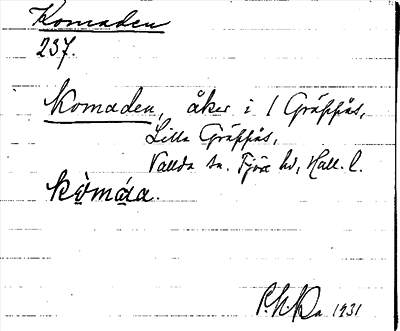 Komaden
237.
Komaden, åker i 1 Gräppås,
Lilla Gräppås,
Vallda sn. Fjäre hd, Hall. l.
kò̤máa.
1931